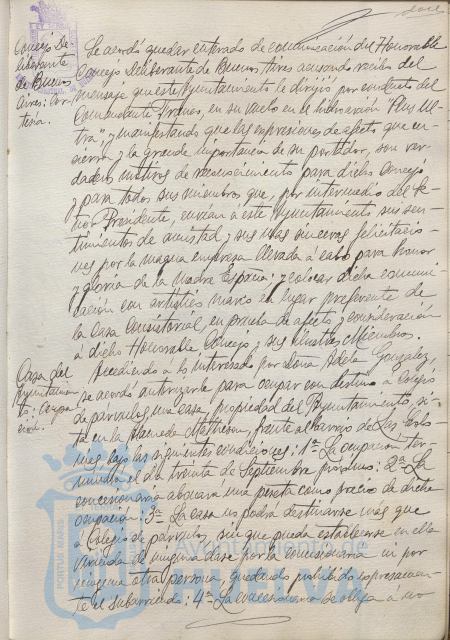 doce
Concejo De-
liberante
de Buenos
Aires. Cor-
tesía.
Se acordó quedar enterado de comunicación del Honorable
Concejo Deliberante de Buenos Aires acusando recibo del
mensaje que este Ayuntamiento le dirigió por conducto del
Comandante Franco, en su vuelo en el hidroavión "Plus Ul-
tra" y manifestando que las expresiones de afecto que en-
cierra y la grande importancia de su portador, son ver-
daderos motivos de reconocimiento para dicho Concejo
y para todos sus miembros que, por intermedio del Se-
ñor Presidente, envían a este Ayuntamiento sus sen-
timientos de amistad y sus mas sinceras felicitacio-
nes por la magna empresa llevada á cabo para honor
y gloria de la Madre España: y colocar dicha comuni-
cación con artístico marco en lugar preferente de
la Casa Consistorial, en prueba de afecto y consideración
á dicho Honorable Concejo y sus ilustres Miembros.
Casa del
Ayuntamien-
to: Ocupa-
ción.
Accediendo á lo interesado por Doña Adela González,
se acordó autorizarle para ocupar con destino a Colegio
de párvulos una casa, propiedad del Ayuntamiento, si-
ta en la Alameda Matheson, frente al barrio de Las Colo-
nias, bajo las siguientes condiciones: 1ª La ocupación ter-
minará el día treinta de Septiembre próximo: 2ª La
concesionaria abonará una peseta como precio de dicha
ocupación: 3ª La casa no podrá destinarse mas que
á Colegio de párvulos, sin que pueda establecerse en ella
vivienda de ninguna clase por la concesionaria ni por
ninguna otra persona, quedando prohibido expresamen-
te el subarriendo: 4ª La concesionaria se obliga á no
PORTUS MARIS
Ayuntamiento de